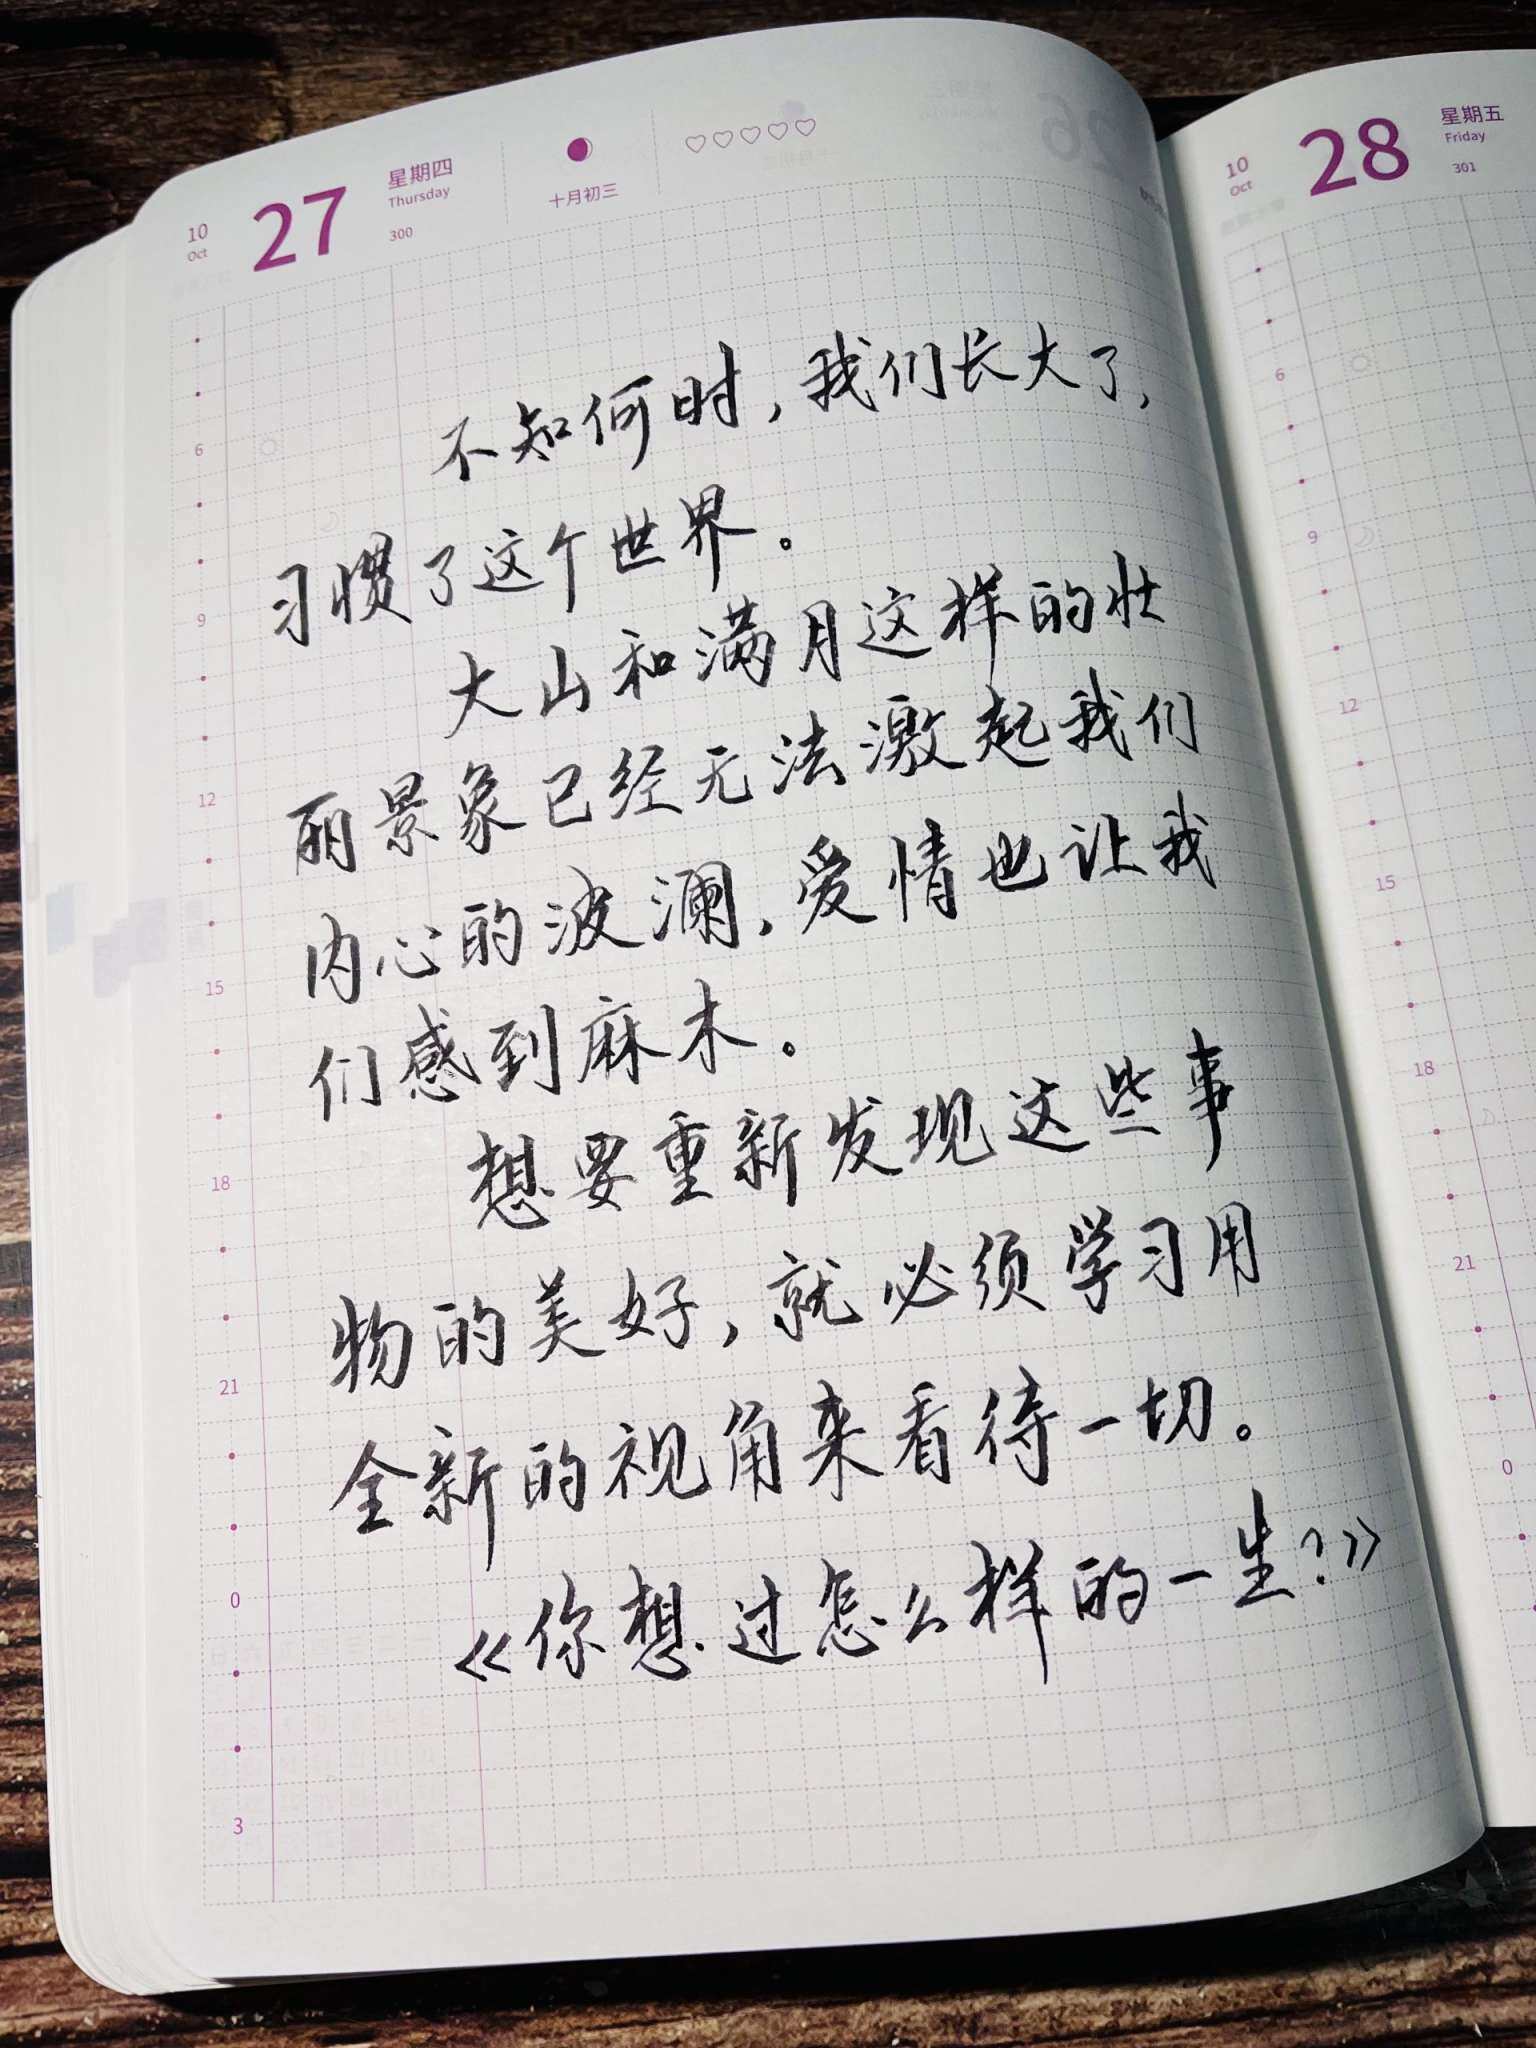 10
Oct
27
星期四
Thursday
300
十月初三
不知何时，我们长大了，
习惯了这个世界。
大山和满月这样的壮
丽景象已经无法激起我们
内心的波澜，爱情也让我
们感到麻木。
想要重新发现这些事
物的美好，就必须学习用
全新的视角来看待一切。
《你想过怎么样的一生？》
6
9
12
15
18
21
0
3
10
Oct
28
星期五
Friday
301
6
9
12
15
18
21
0